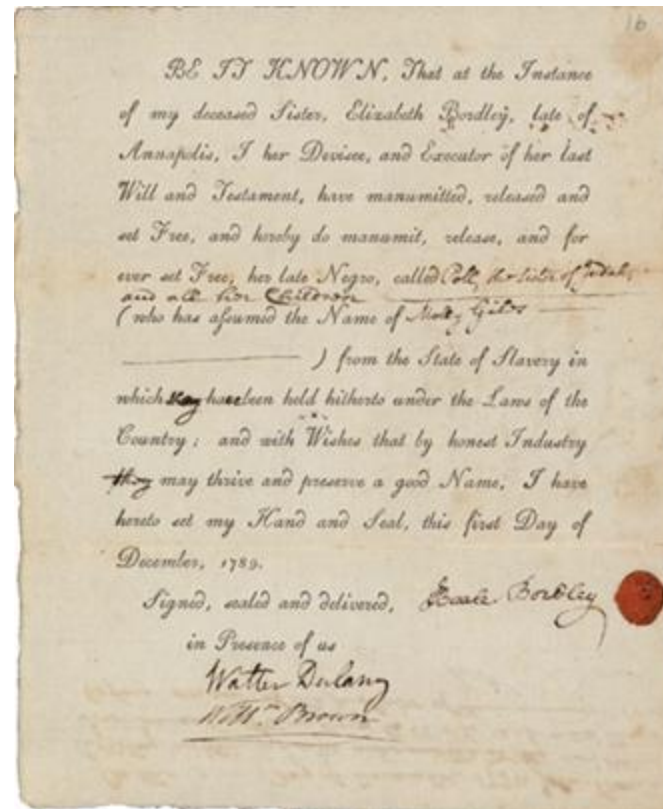 16
BE IT KNOWN, That at the Instance
of my deceased Sister, Elizabeth Bordley, late of
Annapolis, I her Devisee, and Executor of her last
Will and Testament, have manumitted, released and
set Free, and hereby do manumit, release, and for
ever set Free, her late Negro, called Poll, the sister of
and all her Children
(who has assumed the Name of Molly Giles
) from the State of Slavery in
which they have been held hitherto under the Laws of the
Country; and with Wishes that by honest Industry
they may thrive and preserve a good Name, I have
hereto set my Hand and Seal, this first Day of
December, 1789.
Signed, sealed and delivered,
Beale Bordley
in Presence of us
Walter Dulany
Willm. Brown